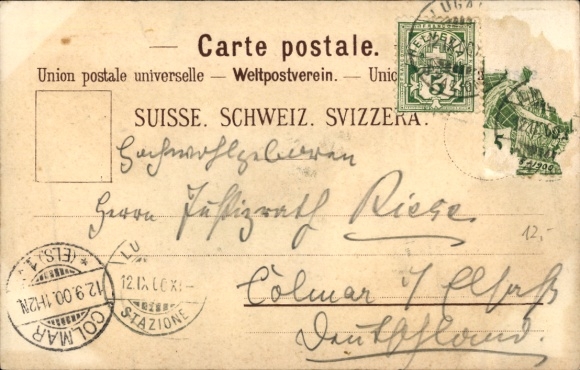 Carte postale.
Union postale universelle — Weltpostverein. — Unio
SUISSE. SCHWEIZ. SVIZZERA.
LUGA
HELVETIA
5
5
1900
Hochwohlgeboren
Herrn Justizrath Riese
12,-
Colmar i/ Elsaß
Deutschland.
COLMAR * (ELS.) *
12.9.00.11-12N
LU
12.IX.00.XI-
STAZIONE